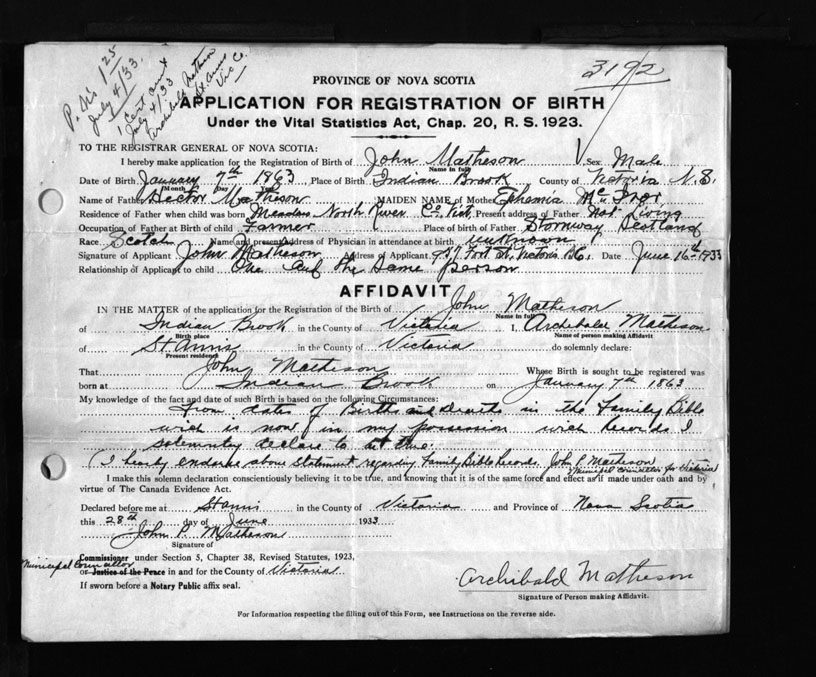 P. No 1 25
July 4/33.
1 Cert and
July 4/33
Archibald Matheson
St. Anns
Vic Co.
3192
PROVINCE OF NOVA SCOTIA
APPLICATION FOR REGISTRATION OF BIRTH
Under the Vital Statistics Act, Chap. 20, R. S. 1923.
TO THE REGISTRAR GENERAL OF NOVA SCOTIA:
I hereby make application for the Registration of Birth of John Matheson Sex Male
Name in full
Date of Birth January 7th 1863 Place of Birth Indian Brook County of Victoria N.S.
Month
Name of Father Hector Matheson MAIDEN NAME of Mother Ephemia
Residence of Father when child was born Meadow North River Co. Vict. Present address of Father Not Living
Occupation of Father at Birth of child Farmer Place of birth of Father Stornway Scotland
Race Scotch Name and present address of Physician in attendance at birth unknown
Signature of Applicant John Matheson Address of Applicant Fort St. Victoria B.C. Date June 16th 1933
Relationship of Applicant to child One and the same person
AFFIDAVIT
IN THE MATTER of the application for the Registration of the Birth of John Matheson
Name in full
of Indian Brook in the County of Victoria I, Archibald Matheson
Birth place Name of person making Affidavit
of St. Anns in the County of Victoria do solemnly declare:
Present residence
That John Matheson Whose Birth is sought to be registered was
born at Indian Brook on January 7th 1863
My knowledge of the fact and date of such Birth is based on the following Circumstances:
From dates of Births and Deaths in the Family Bible
wich is now in my possession wich records I
solemnly declare to be true.
(I hearby endorse above statement regarding Family Bible Records. John P. Matheson
Municipal Councillor for Victoria
I make this solemn declaration conscientiously believing it to be true, and knowing that it is of the same force and effect as if made under oath and by
virtue of The Canada Evidence Act.
Declared before me at St anns in the County of Victoria and Province of Nova Scotia
this 28th day of June 1933
John P. Matheson
Signature of
Commissioner under Section 5, Chapter 38, Revised Statutes, 1923,
Municipal Councillor
or Justice of the Peace in and for the County of Victoria
If sworn before a Notary Public affix seal.
Archibald Matheson
Signature of Person making Affidavit.
For Information respecting the filling out of this Form, see Instructions on the reverse side.